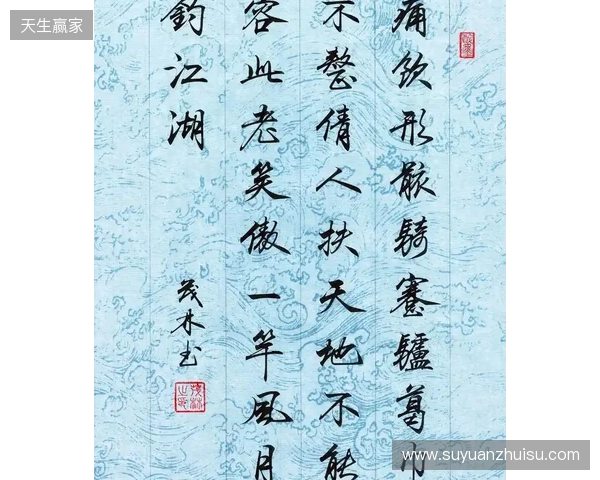 天生赢家
痛飲形骸騎蹇驢葛巾
不整倩人扶天地不能
容此老笑傲一竿風月
釣江湖
茂林书
www.suyuanzhuisu.com